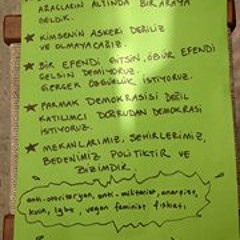 ARAÇLARIN ALTINDA BİR ARAYA
GELDİK.
KİMSENİN ASKERİ DEĞİLİZ
VE OLMAYACAĞIZ.
BİR EFENDİ GİTSİN, ÖBÜR EFENDİ
GELSİN DEMİYORUZ.
GERÇEK ÖZGÜRLÜK İSTİYORUZ.
PARMAK DEMOKRASİSİ DEĞİL
KATILIMCI DOĞRUDAN DEMOKRASİ
İSTİYORUZ.
MEKANLARIMIZ, ŞEHİRLERİMİZ,
BEDENİMİZ POLİTİKTİR VE
BİZİMDİR.
anti-otoriteryan, anti-militarist, anarşist,
kuir, lgbt, vegan feminist